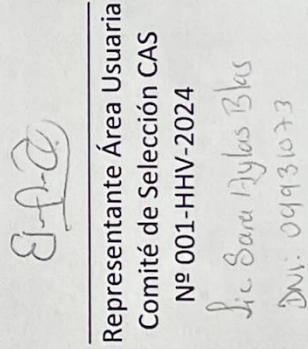 Representante Área Usuaria
Comité de Selección CAS
Nº 001-HHV-2024
Lic. Sara Aylas Blas
DNI: 09931073